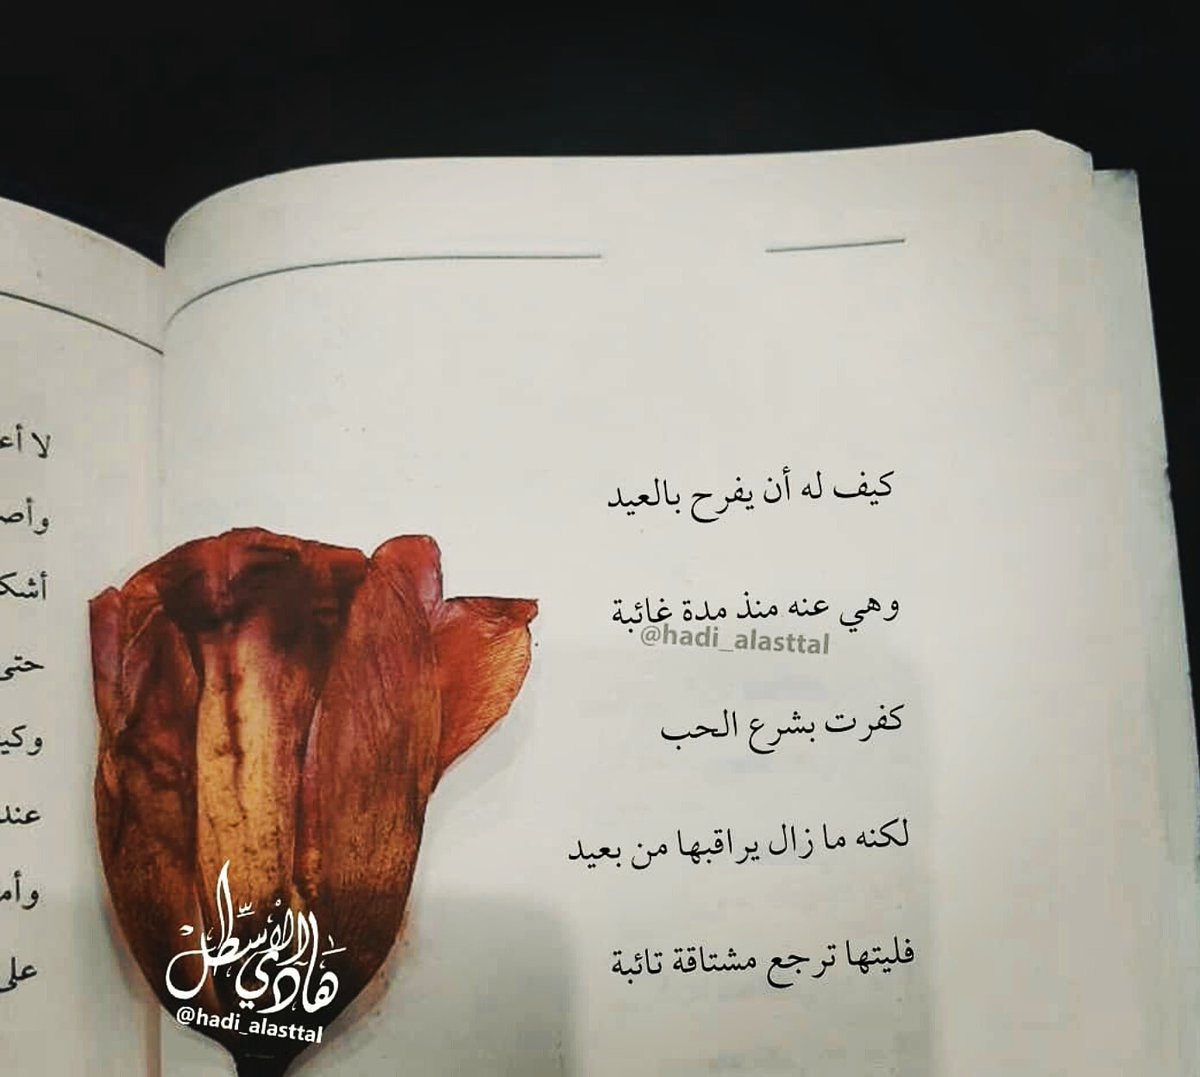 كيف له أن يفرح بالعيد
وهي عنه منذ مدة غائبة
@hadi_alasttal
كفرت بشرع الحب
لكنه ما زال يراقبها من بعيد
فليتها ترجع مشتاقة تائبة
هادي الأسطل
@hadi_alasttal
لا أع
وأص
أشك
حتى
وكي
عند
وأم
على